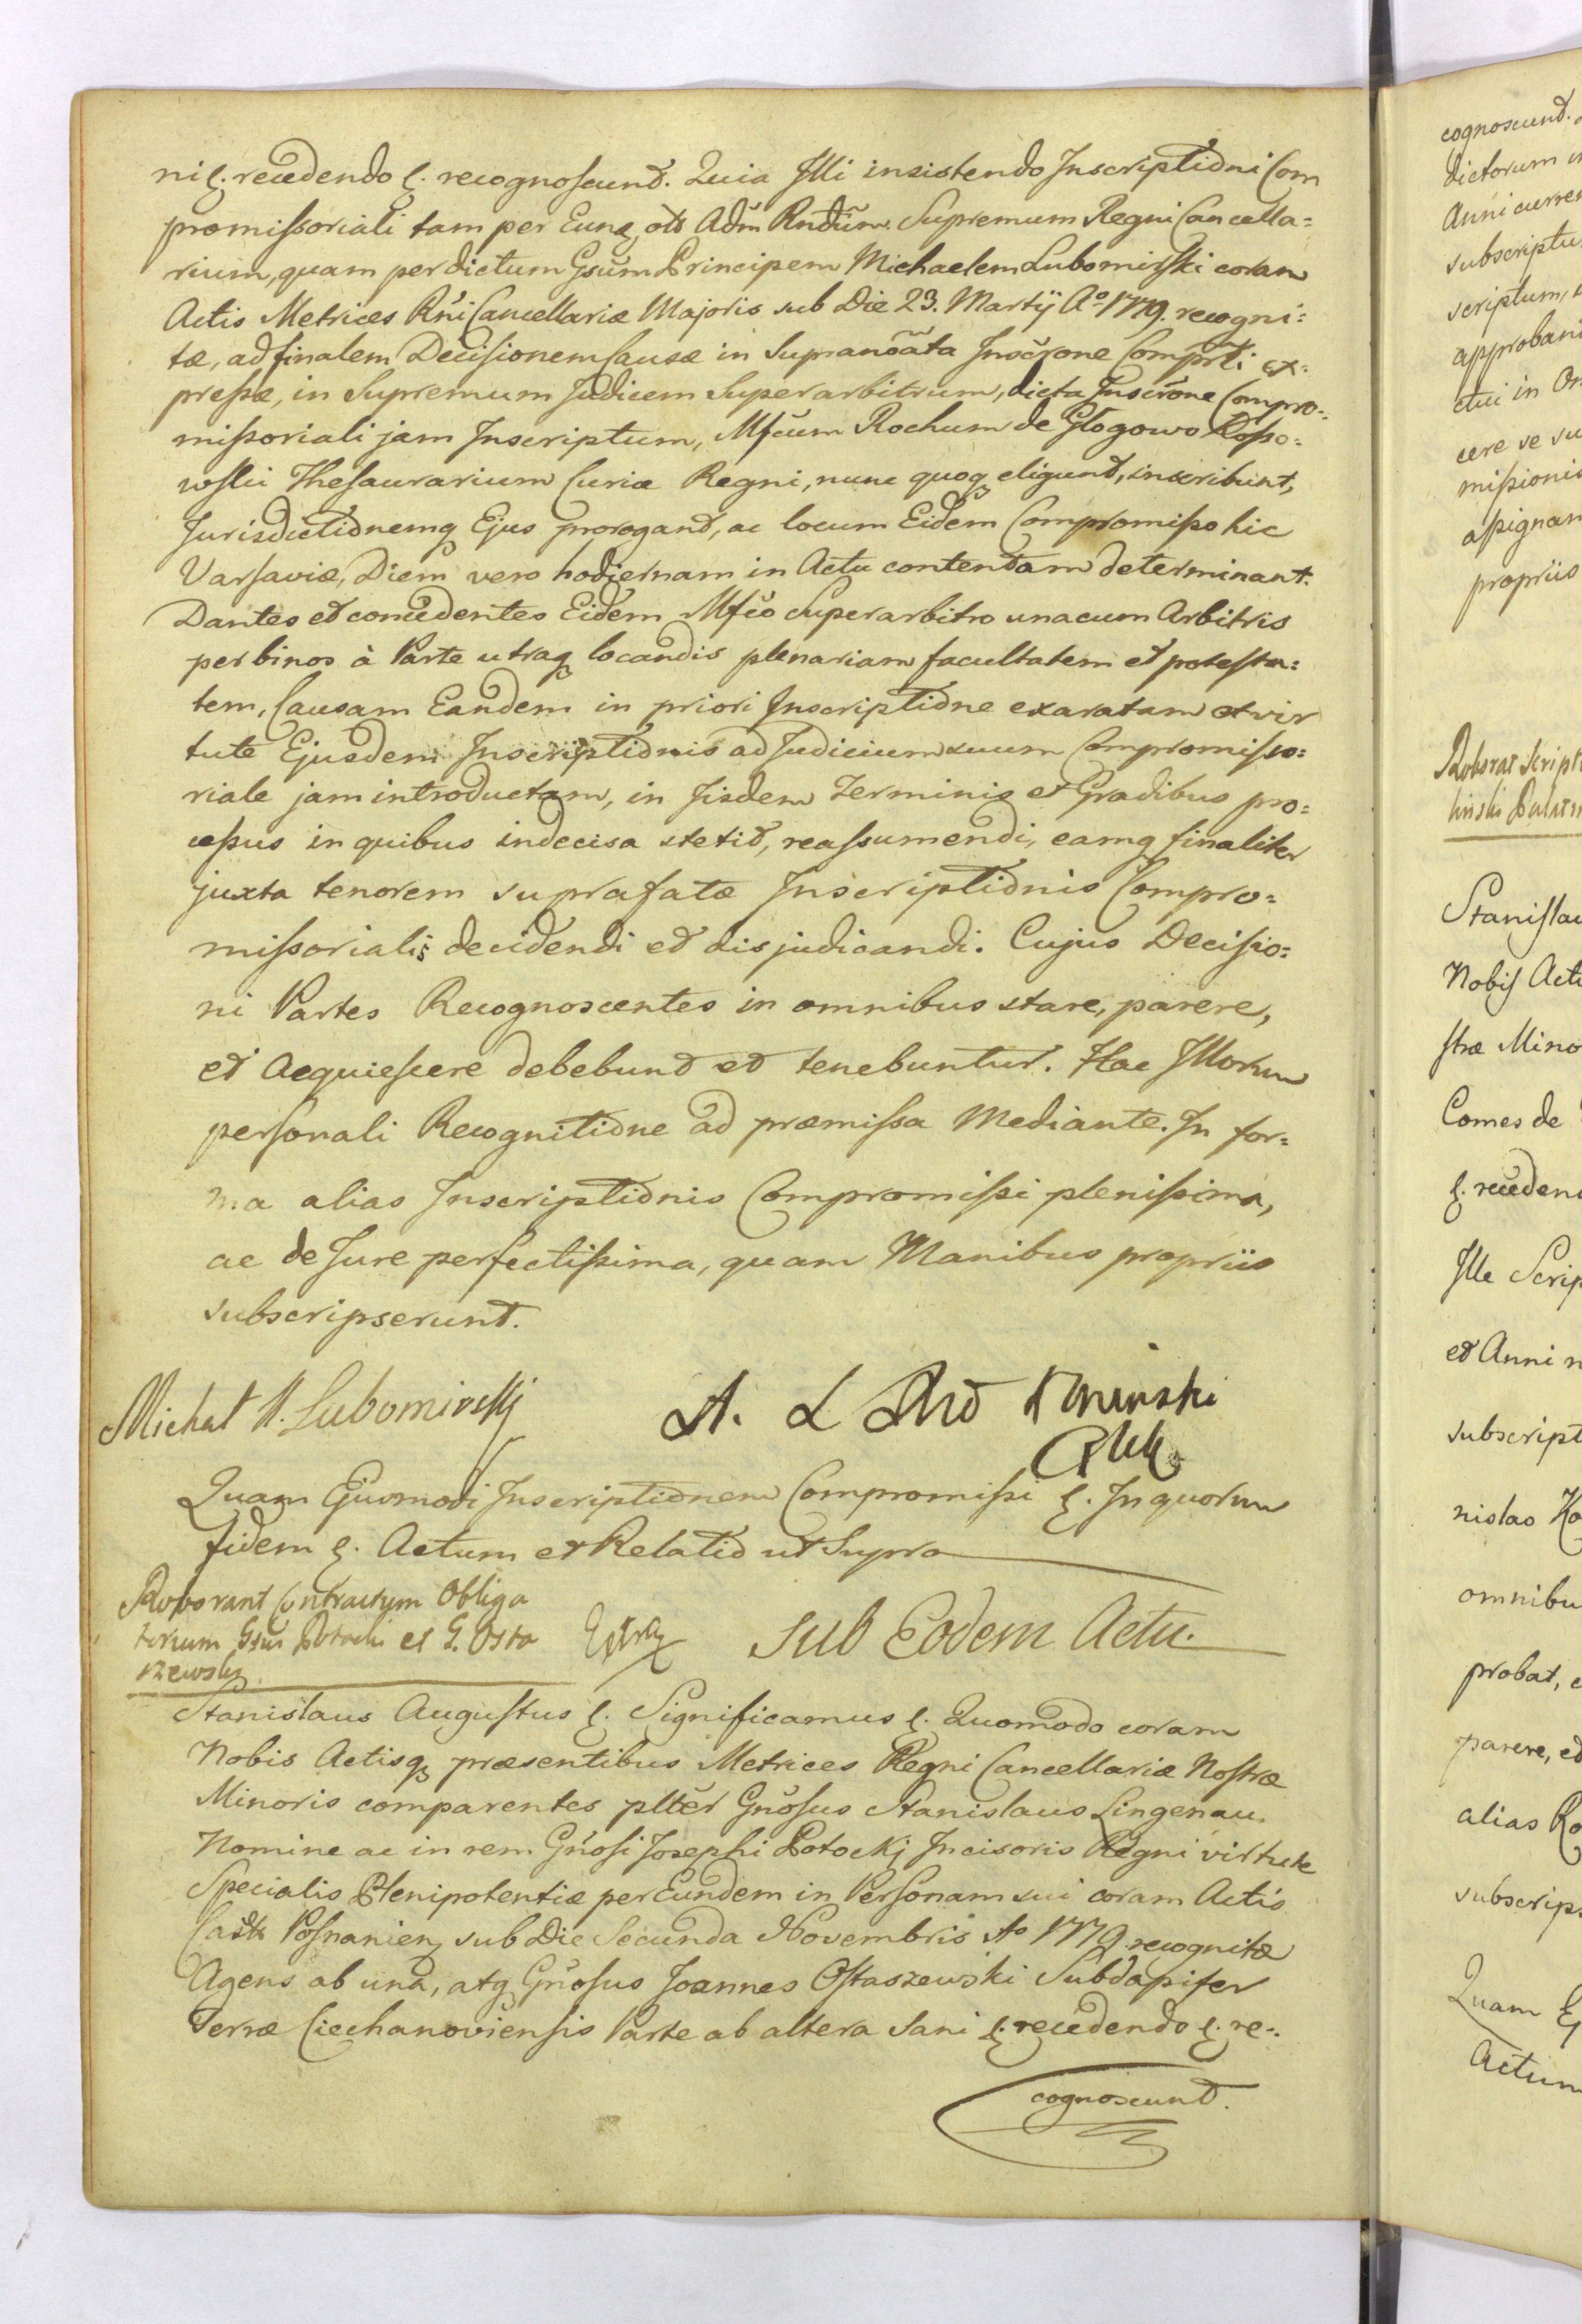 ni ę. recedendo ę. recognoscunt. Quia Illi insistendo Inscriptioni Com
promissoriali tam per Eunq ołt Adm̃ Rndũm Supremum Regni Cancella=
rium, quam per dictum Gsũm Principem Michaelem Lubomirski coram
Actis Metrices Rñi Cancellariæ Majoris sub Die 23. Martij Aº 1779. recogni=
tæ, ad finalem Decisionem Causæ in Supranoãta Inscrõne Comprti ex=
pressæ, in Supremum Judicem Superarbitrum, dicta Inscrõne Compro=
missoriali jam Inscriptum, Mfcum Rochum de Głogowo Kosso=
wski Thesaurarium Curiæ Regni, nunc quoq eligunt, inscribunt,
Jurisdictionemq Ejus prorogant, ac locum Eidem Compromisso hic
Varsaviæ, Diem vero hodiernam in Actu contentam determinant.
Dantes et concedentes Eidem Mfco Superarbitro unacum Arbitris
per binos à Parte utraq locandis plenariam facultatem et potesta=
tem, Causam Eandem in priori Inscriptione exaratam et vir
tute Ejusdem Inscriptionis ad Judicium suum Compromisso=
riale jam introductam, in Iisdem Terminis et Gradibus pro=
cessus in quibus indecisa stetit, reassumendi, eamq finaliter
juxta tenorem suprafatæ Inscriptionis Compro=
missorialis decidendi et disjudicandi. Cujus Decisio=
ni Partes Recognoscentes in omnibus stare, parere,
et Acquiescere debebunt et tenebuntur. Hac Illorum
personali Recognitione ad præmissa Mediante. In for=
ma alias Inscriptionis Compromissi plenissima,
ac de Jure perfectissima, quam Manibus propriis
subscripserunt.
Michał X. Lubomirskj
A. Ł Poninski
Quam Ejusmodi Inscriptionem Compromissi ę. In quorum
fidem ę. Actum et Relatio ut Supra
Roborant Contractum Obliga
torium Gsus Potocki et G. Osta
szewski
Sub Eodem Actu.
Stanislaus Augustus ę. Significamus ę. Quomodo coram
Nobis Actisq præsentibus Metrices Regni Cancellariæ Nostræ
Minoris comparentes pltẽr Gñosus Stanislaus Lingenau
Nomine ac in rem Gñosi Josephi Potockj Incisoris Regni virtute
Specialis Plenipotentiæ per Eundem in Personam sui coram Actis
Castr Posnanien sub Die Secunda Novembris Aº 1779 recognitæ
Agens ab una, atq Gñosus Joannes Ostaszewski Subdapifer
Terræ Ciechanoviensis Parte ab altera Sani ę. recedendo ę. re=
cognoscunt.
cognoscunt.
dictorum
Anni curren
subscriptu
scriptum,
approban
ctui in Or
cere se su
missionis
assignan
propriis
Roborat Script
Stanislau
Nobis Acti
stræ Mino
Comes de
ę. recedend
Ille Scrip
et Anni n
subscript
nislao Ko
omnibu
probat, e
parere, et
alias Ro
subscrips
Quam Ej
Actum